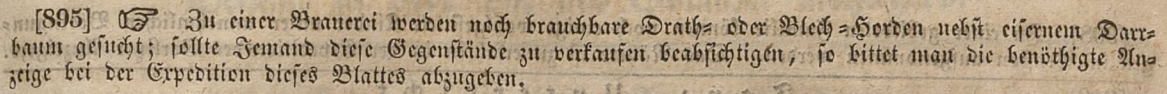 [895] ☞ Zu einer Brauerei werden noch brauchbare Drath- oder Blech-Horden nebst eisernem Darr-
baum gesucht; sollte Jemand diese Gegenstände zu verkaufen beabsichtigen, so bittet man die benöthigte An-
zeige bei der Expedition dieses Blattes abzugeben.